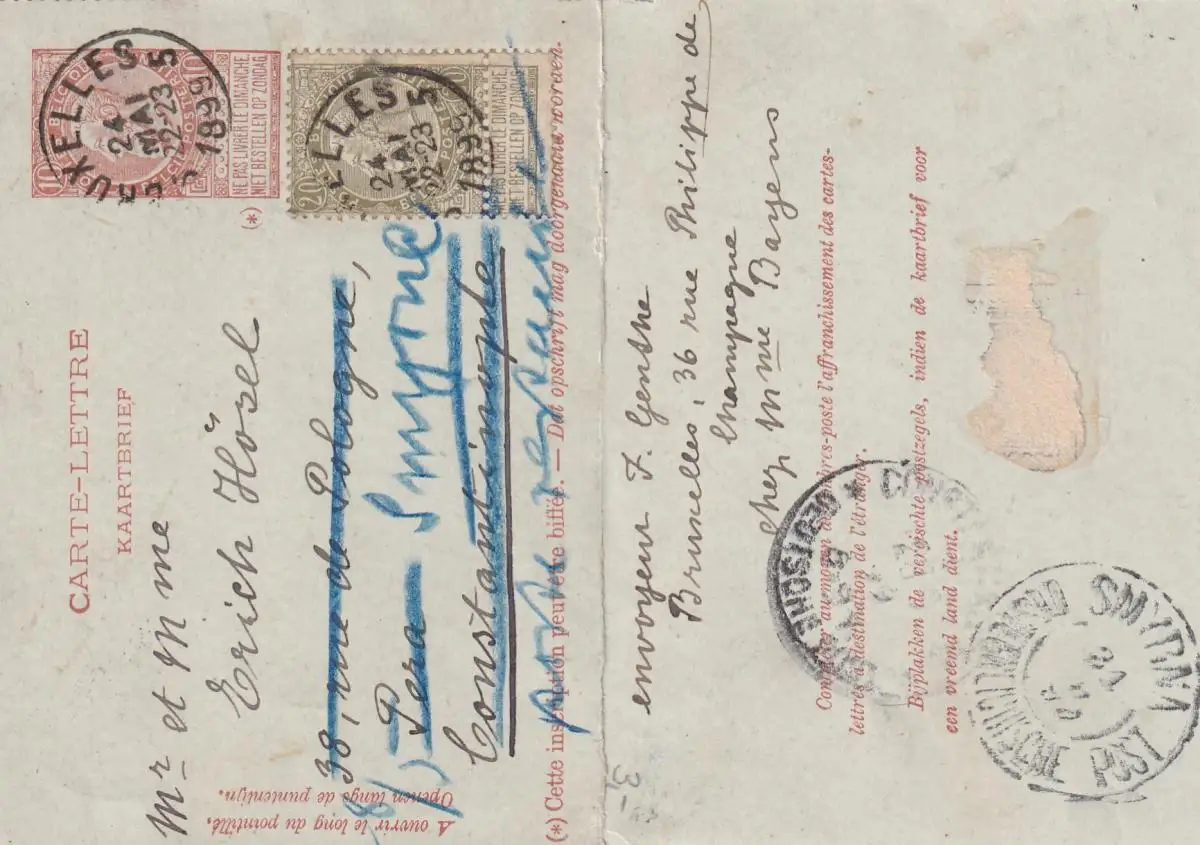 CARTE-LETTRE
KAARTBRIEF
BRUXELLES 5
24
MAI
22-23
1899
10
NE PAS LIVRER LE DIMANCHE
NIET BESTELLEN OP ZONDAG
(*)
LLES 5
24
MAI
22-23
1899
20
NE PAS LIVRER LE DIMANCHE
NIET BESTELLEN OP ZONDAG
Mr et Mme
Erich Hösel
38, rue de Pologne,
Pera
Smyrne
Constantinople
poste restante
A ouvrir le long du pointillé.
Openen langs de puntenlijn.
(*) Cette inscription peut être biffée. — Dat opschrift mag doorgehaald worden.
envoyeur F. Genthe
Bruxelles, 36 rue Philippe de
Champagne
chez Mme Bayens
Compléter au moyen de timbres-poste l'affranchissement des cartes-
lettres à destination de l'étranger.
Bijplakken de vereischte postzegels, indien de kaartbrief voor
een vreemd land dient.
DEUTSCHE
SMYRNA
POST